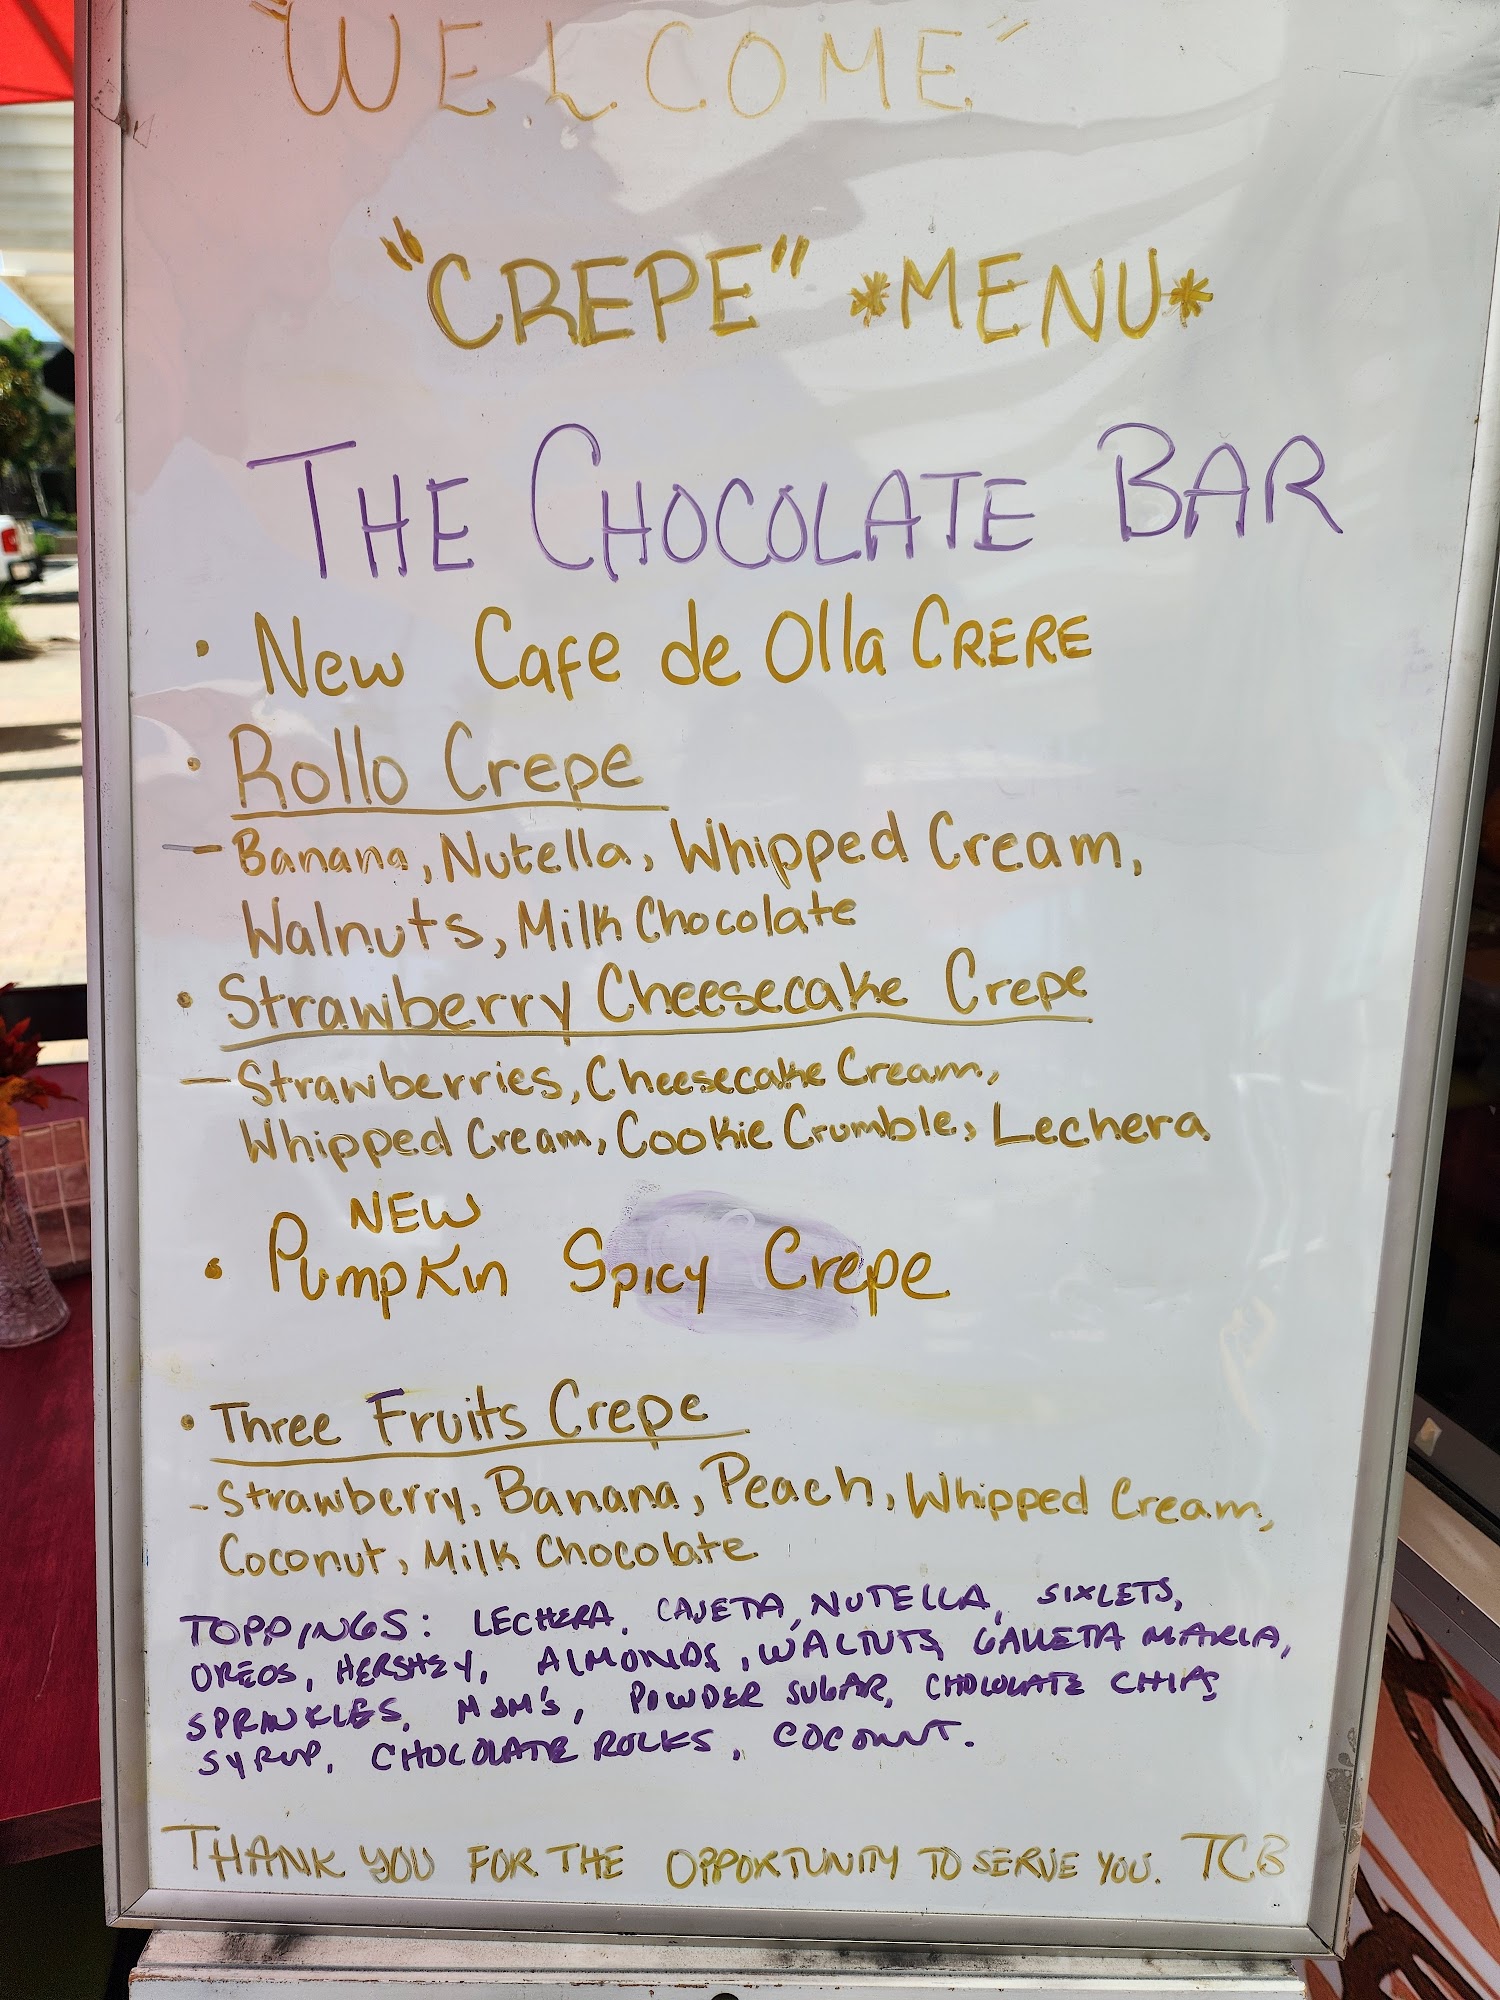 "WELCOME"
"CREPE" *MENU*
THE CHOCOLATE BAR
• New Cafe de Olla CRERE
• Rollo Crepe
– Banana, Nutella, Whipped Cream,
Walnuts, Milk Chocolate
• Strawberry Cheesecake Crepe
– Strawberries, Cheesecake Cream,
Whipped Cream, Cookie Crumble, Lechera
NEW
• Pumpkin Spicy Crepe
• Three Fruits Crepe
- Strawberry, Banana, Peach, Whipped Cream,
Coconut, Milk Chocolate
TOPPINGS: LECHERA, CAJETA, NUTELLA, SIXLETS,
OREOS, HERSHEY, ALMONDS, WALNUTS, GALLETA MARIA,
SPRINKLES, M&M's, POWDER SUGAR, CHOCOLATE CHIPS,
SYRUP, CHOCOLATE ROCKS, COCONUT.
THANK YOU FOR THE OPPORTUNITY TO SERVE YOU. TCB